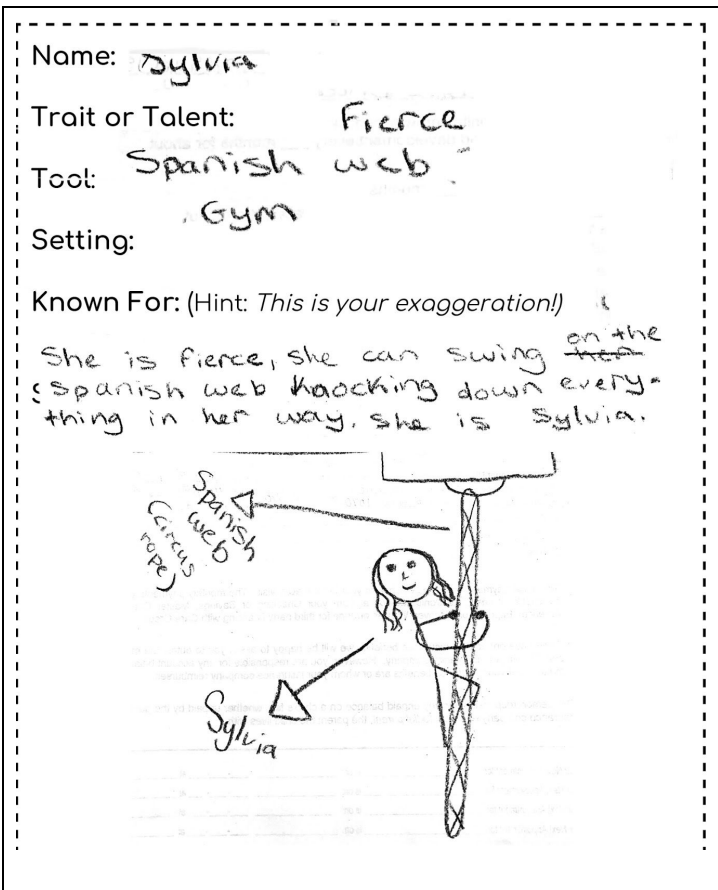 Name: Sylvia
Trait or Talent: Fierce
Tool: Spanish web
Gym
Setting:
Known For: (Hint: This is your exaggeration!)
She is fierce, she can swing on the
spanish web knocking down every-
thing in her way. she is Sylvia.
Spanish
web
(circus
rope)
Sylvia